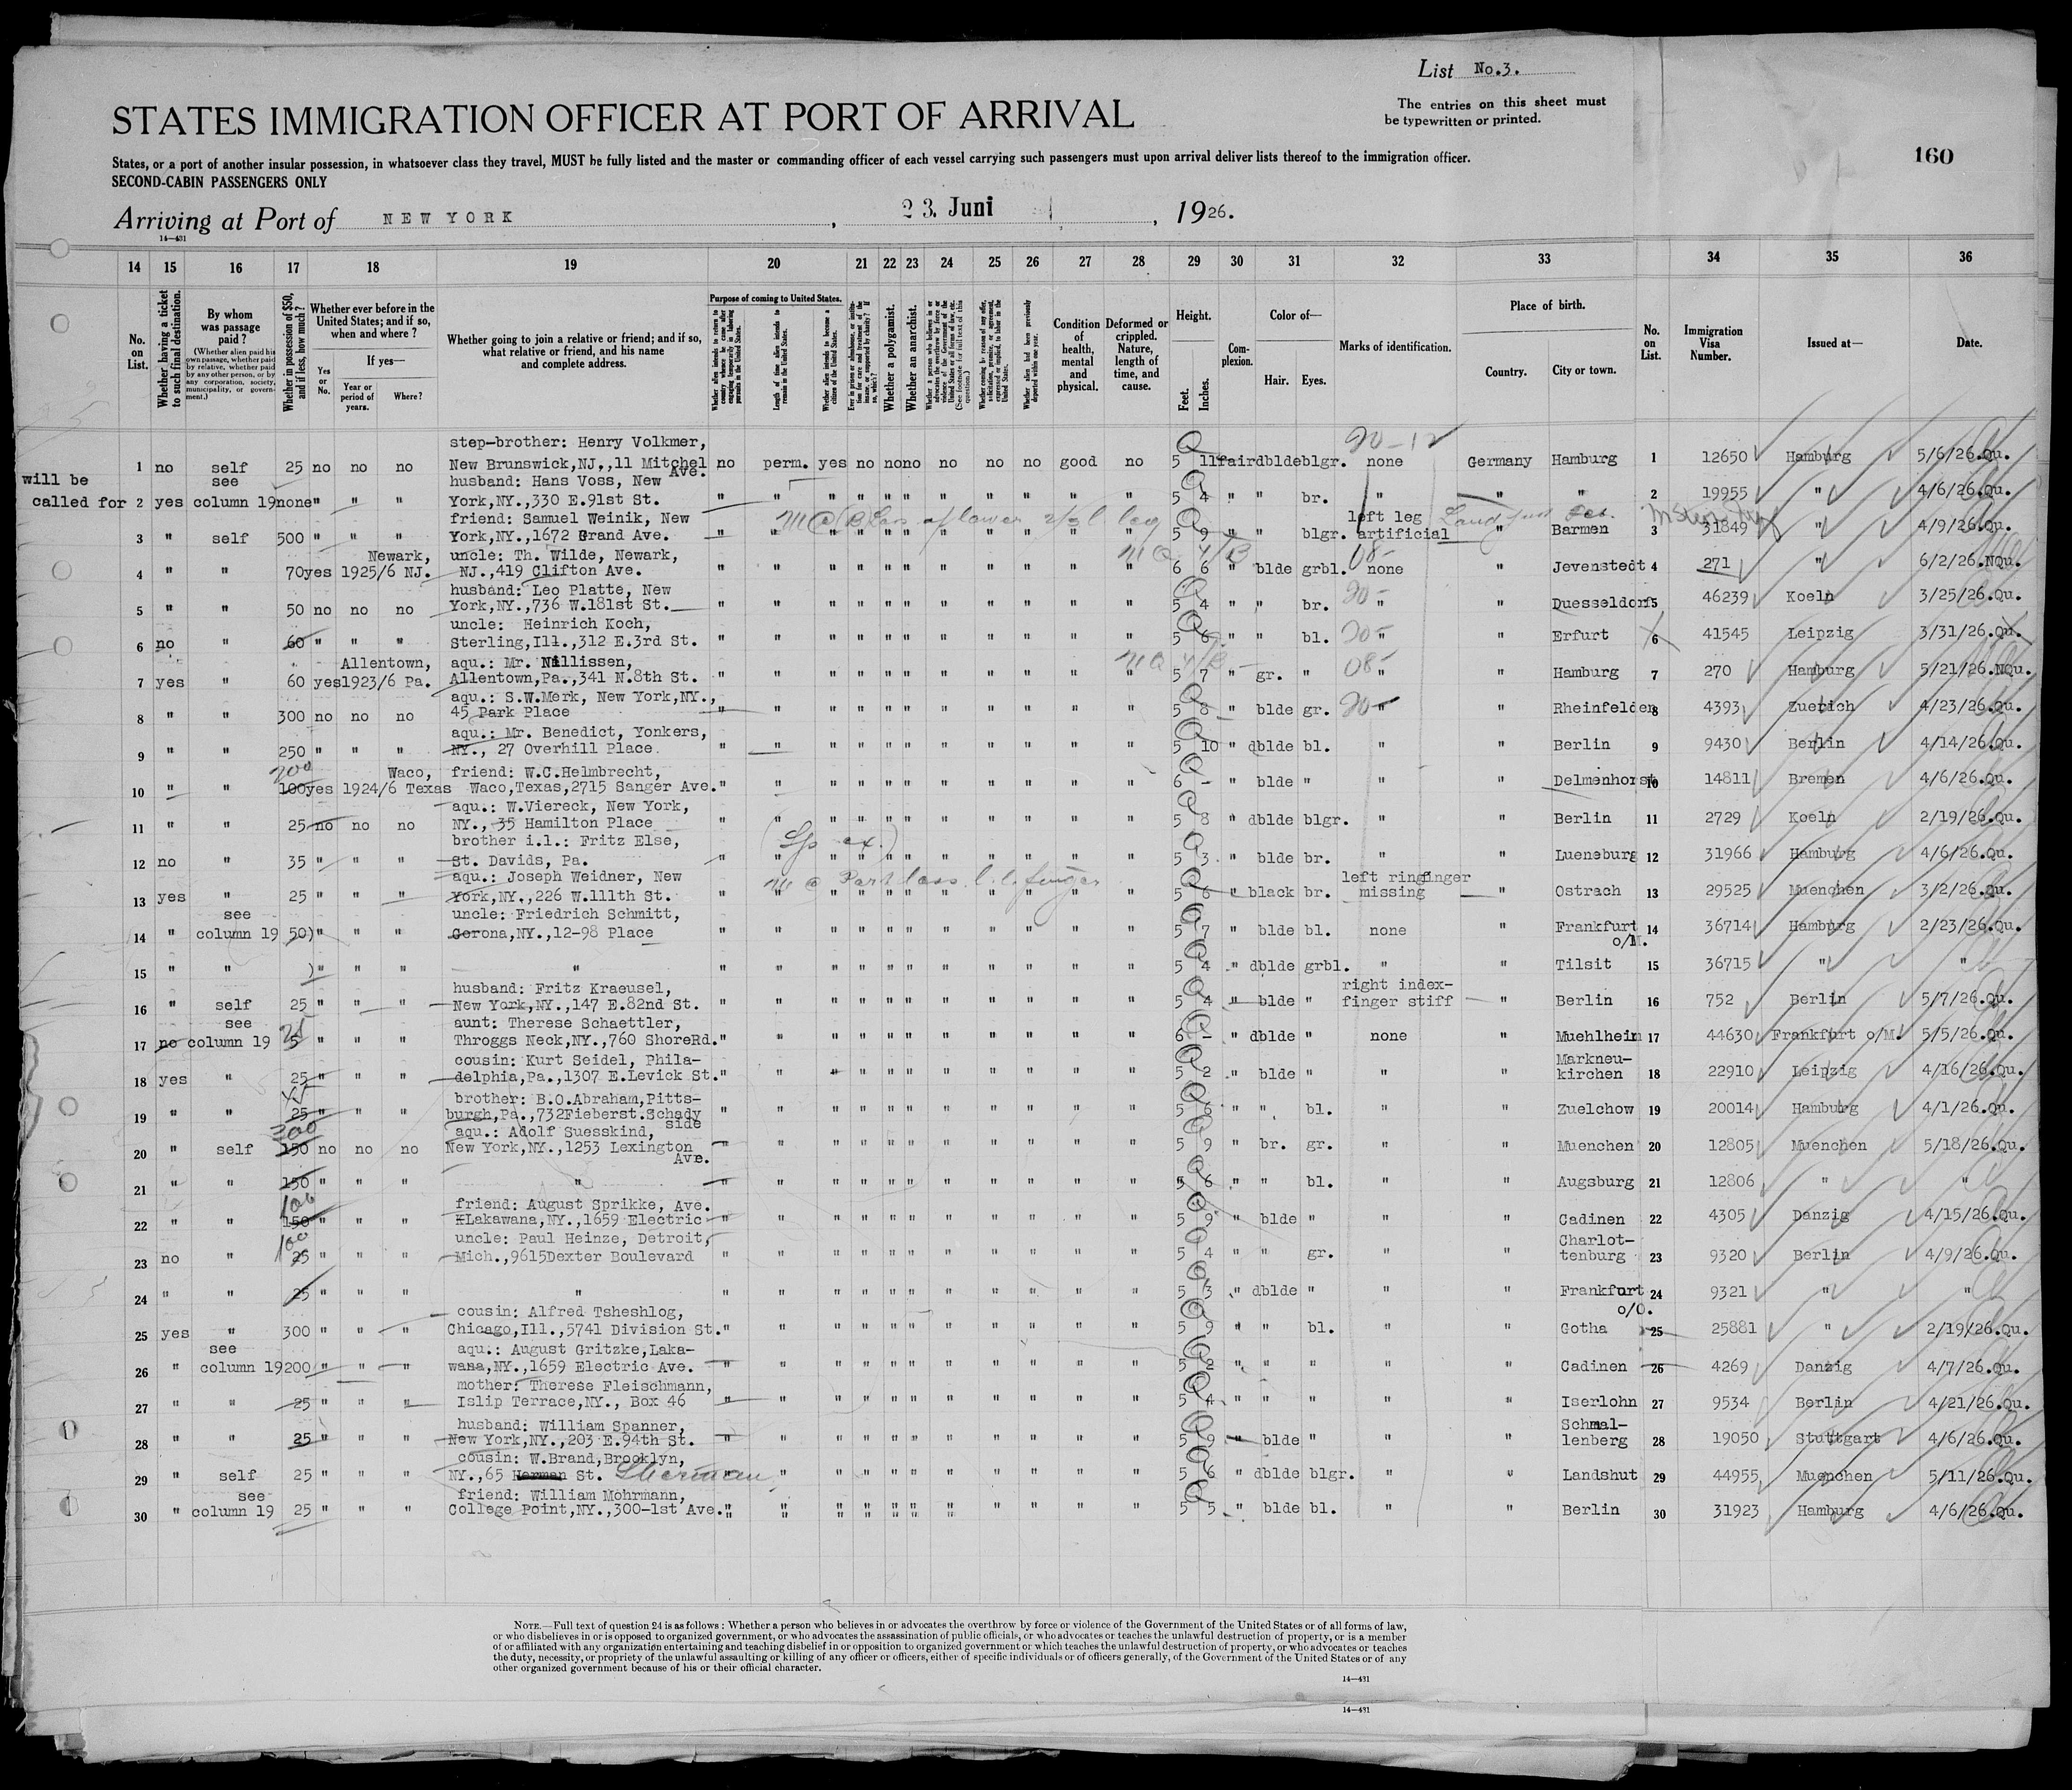 List No.3.
The entries on this sheet must
be typewritten or printed.
STATES IMMIGRATION OFFICER AT PORT OF ARRIVAL
160
States, or a port of another insular possession, in whatsoever class they travel, MUST be fully listed and the master or commanding officer of each vessel carrying such passengers must upon arrival deliver lists thereof to the immigration officer.
SECOND-CABIN PASSENGERS ONLY
Arriving at Port of NEW YORK, 23. Juni, 1926.
14—431
14 15 16 17 18 19 20 21 22 23 24 25 26 27 28 29 30 31 32 33 34 35 36
No. on List.
Whether having a ticket to such final destination.
By whom was passage paid?
(Whether alien paid his own passage, whether paid by relative, whether paid by any other person, or by any corporation, society, municipality, or government.)
Whether in possession of $50, and if less, how much?
Whether ever before in the United States; and if so, when and where?
If yes—
Yes or No.
Year or period of years.
Where?
Whether going to join a relative or friend; and if so, what relative or friend, and his name and complete address.
Purpose of coming to United States.
Whether alien intends to return to country whence he came after engaging temporarily in laboring pursuits in the United States.
Length of time alien intends to remain in the United States.
Whether alien intends to become a citizen of the United States.
Ever in prison or almshouse, or institution for care and treatment of the insane, or supported by charity? If so, which?
Whether a polygamist.
Whether an anarchist.
Whether a person who believes in or advocates the overthrow by force or violence of the Government of the United States or all forms of law, etc. (See footnote for full text of this question.)
Whether coming by reason of any offer, solicitation, promise, or agreement, expressed or implied, to labor in the United States.
Whether alien had been previously deported within one year.
Condition of health, mental and physical.
Deformed or crippled. Nature, length of time, and cause.
Height.
Feet. Inches.
Complexion.
Color of—
Hair. Eyes.
Marks of identification.
Place of birth.
Country. City or town.
No. on List.
Immigration Visa Number.
Issued at—
Date.
step-brother: Henry Volkmer,
1 no self 25 no no no New Brunswick,NJ.,11 Mitchel Ave. no perm. yes no no no no no no good no 5 11 fair dblde blgr. none Germany Hamburg 1 12650 Hamburg 5/6/26.Qu.
will be called for
see husband: Hans Voss, New
2 yes column 19 none " " " York,NY.,330 E.91st St. " " " " " " " " " " " 5 4 " " br. " " " 2 19955 " 4/6/26.Qu.
friend: Samuel Weinik, New left leg
3 " self 500 " " " York,NY.,1672 Grand Ave. " " " " " " " " " " " 5 9 " " blgr. artificial " Barmen 3 31849 " 4/9/26.Qu.
Newark, uncle: Th. Wilde, Newark,
4 " " 70 yes 1925/6 NJ. NJ.,419 Clifton Ave. " " " " " " " " " " " 6 6 " blde grbl. none " Jevenstedt 4 271 " 6/2/26.NQu.
husband: Leo Platte, New
5 " " 50 no no no York,NY.,736 W.181st St. " " " " " " " " " " " 5 4 " " br. " " Duesseldorf 5 46239 Koeln 3/25/26.Qu.
uncle: Heinrich Koch,
6 no " 60 " " " Sterling,Ill.,312 E.3rd St. " " " " " " " " " " " 5 6 " " bl. " " Erfurt 6 41545 Leipzig 3/31/26.Qu.
Allentown, aqu.: Mr. Nillissen,
7 yes " 60 yes 1923/6 Pa. Allentown,Pa.,341 N.8th St. " " " " " " " " " " " 5 7 " gr. " " " Hamburg 7 270 Hamburg 5/21/26.NQu.
aqu.: S.W.Merk, New York,NY.,
8 " " 300 no no no 45 Park Place " " " " " " " " " " " 5 8 " blde gr. " " Rheinfelden 8 4393 Zuerich 4/23/26.Qu.
aqu.: Mr. Benedict, Yonkers,
9 " " 250 " " " NY., 27 Overhill Place. " " " " " " " " " " " 5 10 " dblde bl. " " Berlin 9 9430 Berlin 4/14/26.Qu.
200 Waco, friend: W.C.Helmbrecht,
10 " " 100 yes 1924/6 Texas Waco,Texas,2715 Sanger Ave. " " " " " " " " " " " 6 - " blde " " " Delmenhorst 10 14811 Bremen 4/6/26.Qu.
aqu.: W.Viereck, New York,
11 " " 25 no no no NY., 35 Hamilton Place " " " " " " " " " " " 5 8 " dblde blgr. " " Berlin 11 2729 Koeln 2/19/26.Qu.
brother i.l.: Fritz Else,
12 no " 35 " " " St. Davids, Pa. " " " " " " " " " " " 5 3 " blde br. " " Lueneburg 12 31966 Hamburg 4/6/26.Qu.
aqu.: Joseph Weidner, New left ringfinger
13 yes " 25 " " " York,NY.,226 W.111th St. " " " " " " " " " " " 5 6 " black br. missing " Ostrach 13 29525 Muenchen 3/2/26.Qu.
see uncle: Friedrich Schmitt,
14 " column 19 50) " " " Gerona,NY.,12-98 Place " " " " " " " " " " " 5 7 " blde bl. none " Frankfurt o/M. 14 36714 Hamburg 2/23/26.Qu.
15 " " ) " " " " " " " " " " " " " " " 5 4 " dblde grbl. " " Tilsit 15 36715 " "
husband: Fritz Kraeusel, right index-
16 " self 25 " " " New York,NY.,147 E.82nd St. " " " " " " " " " " " 5 4 " blde " finger stiff " Berlin 16 752 Berlin 5/7/26.Qu.
see aunt: Therese Schaettler,
17 no column 19 5 " " " Throggs Neck,NY.,760 ShoreRd. " " " " " " " " " " " 6 - " dblde " none " Muehlheim 17 44630 Frankfurt o/M. 5/5/26.Qu.
cousin: Kurt Seidel, Phila- Markneu-
18 yes " 25 " " " delphia,Pa.,1307 E.Levick St. " " " " " " " " " " " 5 2 " blde " " " kirchen 18 22910 Leipzig 4/16/26.Qu.
brother: B.O.Abraham,Pitts-
19 " " 25 " " " burgh,Pa.,732Fieberst.Schady side " " " " " " " " " " " 5 6 " " bl. " " Zuelchow 19 20014 Hamburg 4/1/26.Qu.
aqu.: Adolf Suesskind,
20 " self 150 no no no New York,NY.,1253 Lexington Ave. " " " " " " " " " " " 5 9 " br. gr. " " Muenchen 20 12805 Muenchen 5/18/26.Qu.
21 " " 150 " " " " " " " " " " " " " " " " " 6 " " bl. " " Augsburg 21 12806 " "
100 friend: August Sprikke, Ave.
22 " " 150 " " " Lakawana,NY.,1659 Electric " " " " " " " " " " " 5 9 " blde " " " Cadinen 22 4305 Danzig 4/15/26.Qu.
100 uncle: Paul Heinze, Detroit, Charlot-
23 no " 25 " " " Mich.,9615Dexter Boulevard " " " " " " " " " " " 5 4 " " gr. " " tenburg 23 9320 Berlin 4/9/26.Qu.
24 " " 25 " " " " " " " " " " " " " " " 5 3 " dblde " " " Frankfurt o/O. 24 9321 " "
cousin: Alfred Tsheshlog,
25 yes " 300 " " " Chicago,Ill.,5741 Division St. " " " " " " " " " " " 5 9 " " bl. " " Gotha 25 25881 " 2/19/26.Qu.
see aqu.: August Gritzke,Laka-
26 " column 19 200 " " " wana,NY.,1659 Electric Ave. " " " " " " " " " " " 5 2 " " " " " Cadinen 26 4269 Danzig 4/7/26.Qu.
mother: Therese Fleischmann,
27 " " 25 " " " Islip Terrace,NY., Box 46 " " " " " " " " " " " 5 4 " " " " " Iserlohn 27 9534 Berlin 4/21/26.Qu.
husband: William Spanner, Schmal-
28 " " 25 " " " New York,NY.,203 E.94th St. " " " " " " " " " " " 5 9 " blde " " " lenberg 28 19050 Stuttgart 4/6/26.Qu.
cousin: W.Brand,Brooklyn,
29 " self 25 " " " NY.,65 Herman St. Sherman " " " " " " " " " " 5 6 " dblde blgr. " " Landshut 29 44955 Muenchen 5/11/26.Qu.
see friend: William Mohrmann,
30 " column 19 25 " " " College Point,NY.,300-1st Ave. " " " " " " " " " " " 5 5 " blde bl. " " Berlin 30 31923 Hamburg 4/6/26.Qu.
NOTE.—Full text of question 24 is as follows: Whether a person who believes in or advocates the overthrow by force or violence of the Government of the United States or of all forms of law,
or who disbelieves in or is opposed to organized government, or who advocates the assassination of public officials, or who advocates or teaches the unlawful destruction of property, or is a member
of or affiliated with any organization entertaining and teaching disbelief in or opposition to organized government or which teaches the unlawful destruction of property, or who advocates or teaches
the duty, necessity, or propriety of the unlawful assaulting or killing of any officer or officers, either of specific individuals or of officers generally, of the Government of the United States or of any
other organized government because of his or their official character.
14—431
14—431